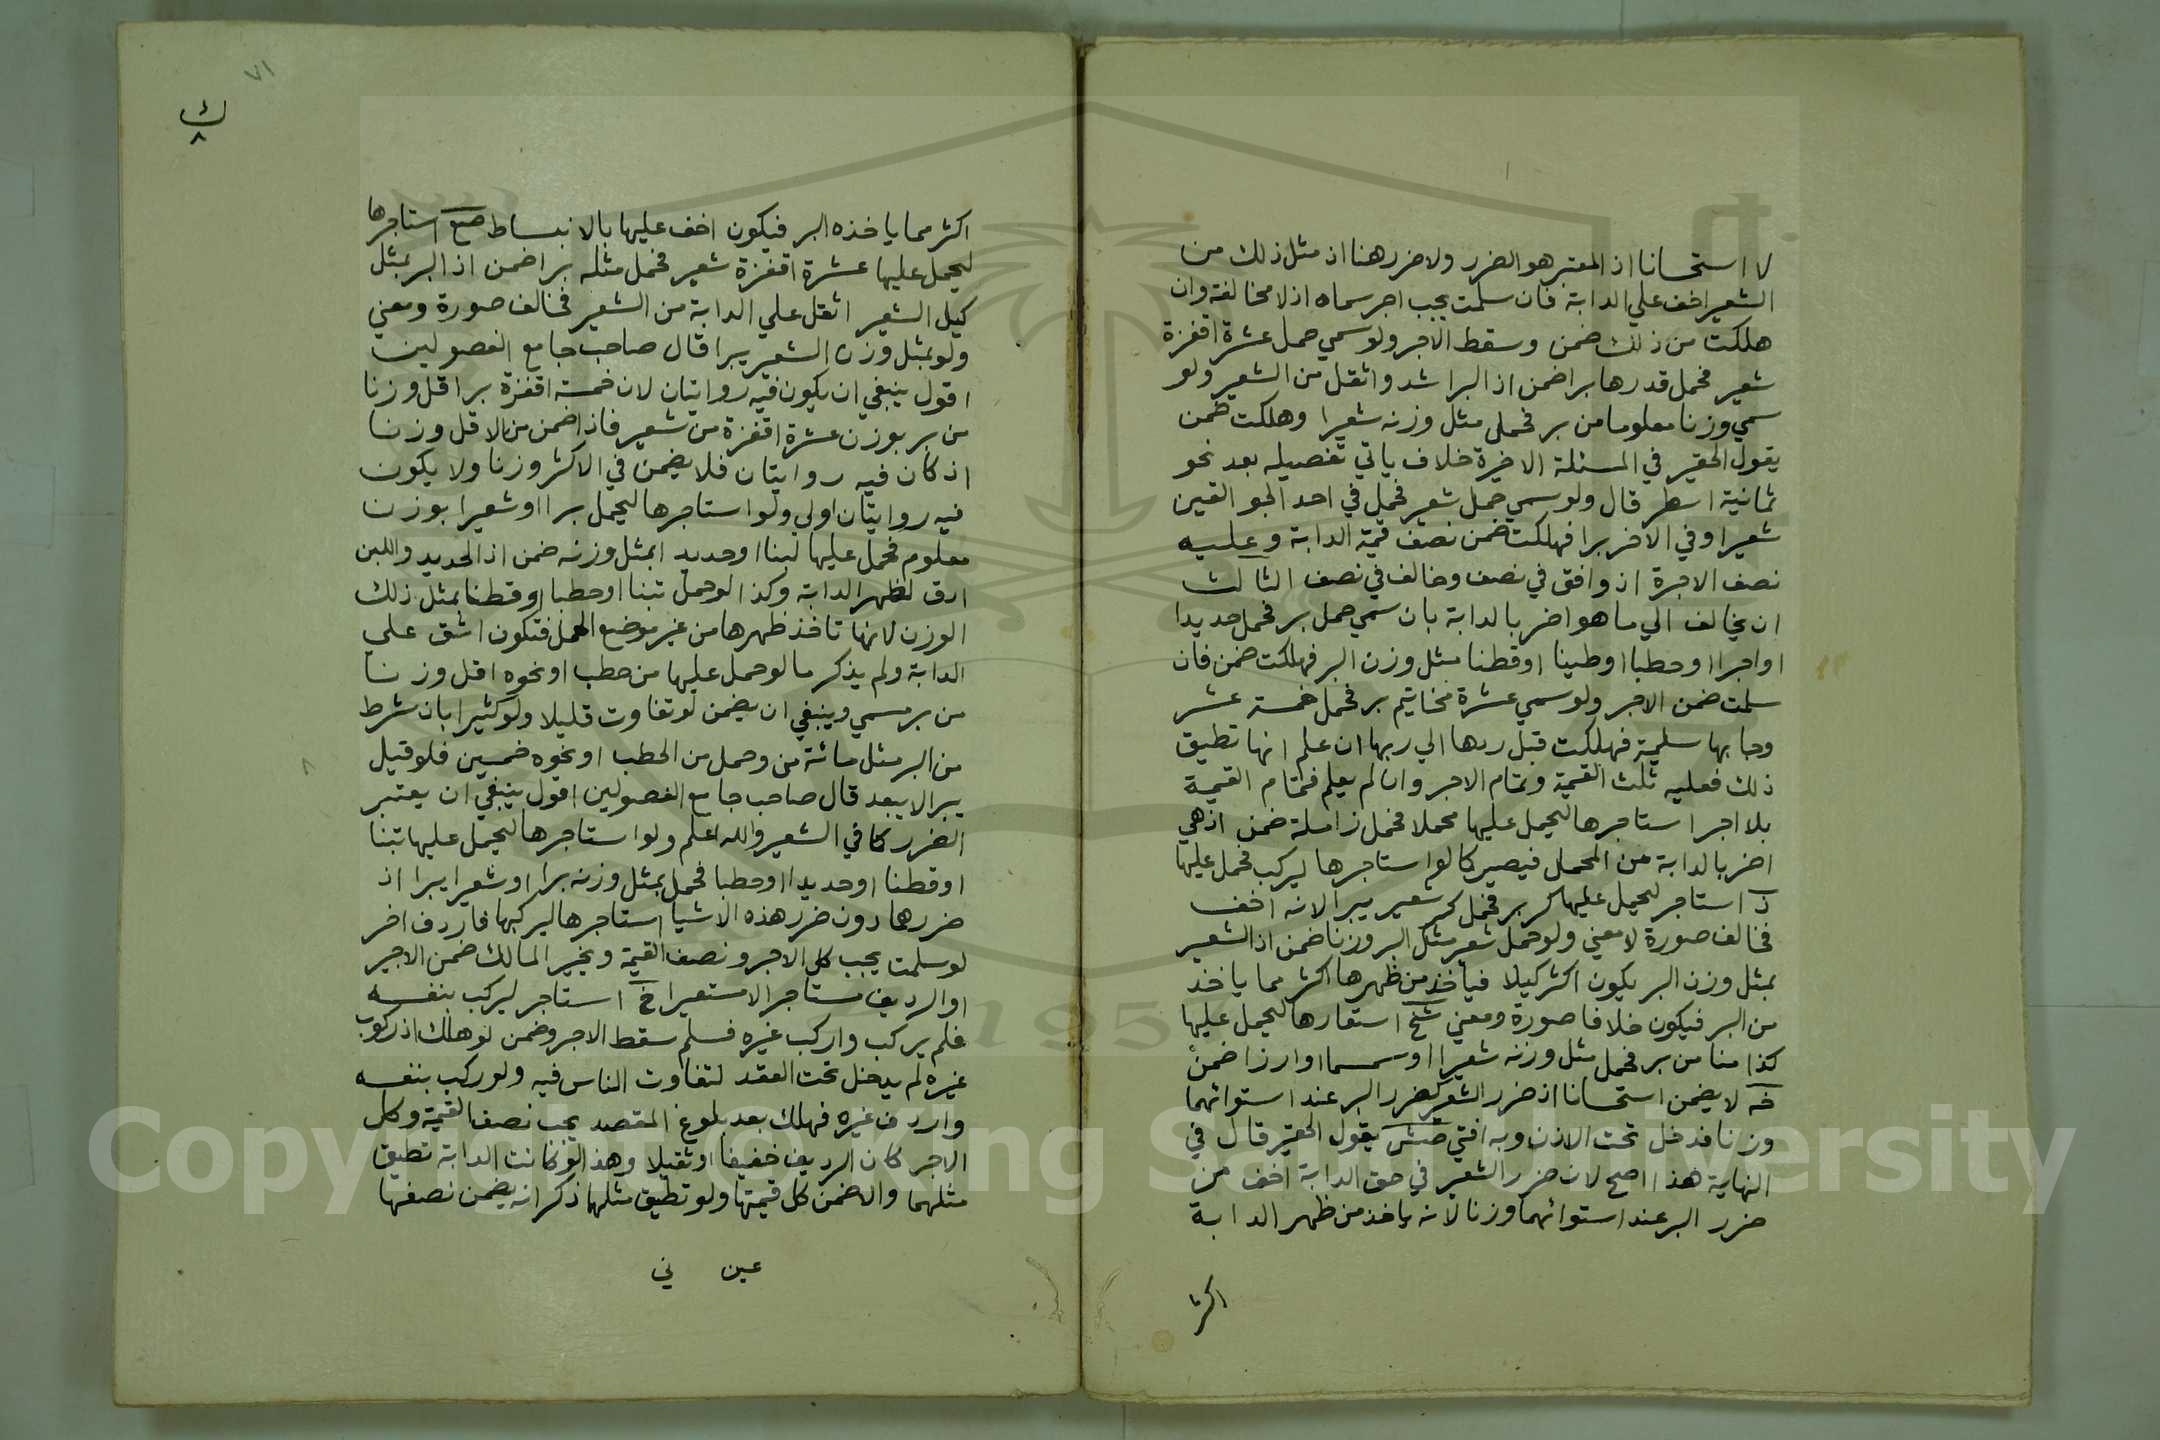 لا استحسانا اذ المعتبر هو الضرر ولا ضرر هنا اذ مثل ذلك من
الشعير اخف علي الدابة فان سلمت يجب اجر سماه اذ لا مخالفة وان
هلكت من ذلك ضمن وسقط الاجر ولو سمي حمل عشرة اقفزة
شعير فحمل قدرها برا ضمن اذ البر اشد واثقل من الشعير ولو
سمي وزنا معلوما من بر فحمل مثل وزنه شعيرا وهلكت ضمن
يقول الحقير في المسئلة الاخيرة خلاف ياتي تفصيله بعد نحو
ثمانية اسطر قال ولو سمي حمل شعير فحمل في احد الجوالقين
شعيرا وفي الاخر برا فهلكت ضمن نصف قيمة الدابة وعليه
نصف الاجرة اذ وافق في نصف وخالف في نصف الثالث
ان يخالف الي ما هو اضر بالدابة بان سمي حمل بر فحمل حديدا
او اجرا او حطبا او طينا او قطنا مثل وزن البر فهلكت ضمن فان
سلمت ضمن الاجر ولو سمي عشرة مخاتيم بر فحمل خمسة عشر
وجا بها سليمة فهلكت قبل ردها الي ربها ان علم انها تطيق
ذلك فعليه ثلث القيمة وتمام الاجر وان لم يعلم فتمام القيمة
بلا اجر استاجرها ليحمل عليها محملا فحمل زاملة ضمن اذ هي
اضر بالدابة من المحمل فيصير كما لو استاجرها ليركب فحمل عليها
استاجر ليحمل عليها كر بر فحمل كر شعير يبرا لانه اخف
فخالف صورة لا معني ولو حمل شعير مثل البر وزنا ضمن اذ الشعير
بمثل وزن البر يكون اكثر كيلا فياخذ من ظهرها اكثر مما ياخذ
من البر فيكون خلافا صورة ومعني شخ استعارها ليحمل عليها
كذا منا من بر فحمل مثل وزنه شعيرا او سمسما او ارزا ضمن
خه لا يضمن استحسانا اذ ضرر الشعير كضرر البر عند استوائهما
وزنا فدخل تحت الاذن وبه افتي يقول الحقير قال في
النهاية هذا اصح لان ضرر الشعير في حق الدابة اخف من
ضرر البر عند استوائهما وزنا لانه ياخذ من ظهر الدابة
اكثر
٧١
ك
٨
اكثر مما ياخذه البر فيكون اخف عليها بالانبساط صع استاجرها
ليحمل عليها عشرة اقفزة شعير فحمل مثله برا ضمن اذ البر بمثل
كيل الشعير اثقل علي الدابة من الشعير فخالف صورة ومعني
ولو بمثل وزن الشعير يبرا قال صاحب جامع الفصولين
اقول ينبغي ان يكون فيه روايتان لان خمسة اقفزة بر اقل وزنا
من بر بوزن عشرة اقفزة من شعير فاذا ضمن من الاقل وزنا
اذ كان فيه روايتان فلا يضمن في الاكثر وزنا ولا يكون
فيه روايتان اولي ولو استاجرها ليحمل برا او شعيرا بوزن
معلوم فحمل عليها لبنا او حديدا بمثل وزنه ضمن اذ الحديد واللبن
ادق لظهر الدابة وكذا لو حمل تبنا او حطبا او قطنا بمثل ذلك
الوزن لانها تاخذ ظهرها من غير موضع الحمل فتكون اشق علي
الدابة ولم يذكر ما لو حمل عليها من حطب او نحوه اقل وزنا
من بر مسمي وينبغي ان يضمن لو تفاوت قليلا ولو كثيرا بان شرط
من البر مثل مائة من وحمل من الحطب او نحوه خمسين فلو قيل
يبرا لا يبعد قال صاحب جامع الفصولين اقول ينبغي ان يعتبر
الضرر كما في الشعير والله اعلم ولو استاجرها ليحمل عليها تبنا
او قطنا او حديدا او حطبا فحمل بمثل وزنه برا او شعيرا يبرا اذ
ضررهما دون ضرر هذه الاشيا استاجرها ليركبها فاردف اخر
لو سلمت يجب كل الاجر ونصف القيمة ويخير المالك ضمن الاجير
او الرديف مستاجرا لا مستعيرا خ استاجر ليركب بنفسه
فلم يركب واركب غيره فسلم سقط الاجر وضمن لو هلك اذ ركوب
غيره لم يدخل تحت العقد لتفاوت الناس فيه ولو ركب بنفسه
واردف غيره فهلك بعد بلوغ المقصد يجب نصف القيمة وكل
الاجر كان الرديف خفيفا او ثقيلا وهذا لو كانت الدابة تطيق
مثلهما والا ضمن كل قيمتها ولو تطيق مثلهما ذكر انه يضمن نصفها
عين في
Copyright © King Saud University
1957